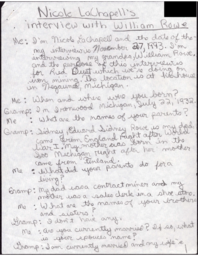 Nicole LaChapell's
Interview with William Rowe
Me: I'm Nicole LaChapell and the date of
my interview November 27, 1993. I'm
interviewing my grandpa William Rowe,
and the purpose of this interview is
for Red Dust which we're doing on
iron mining. The location is at his home
in Negaunee, Michigan.
Me: When and where were you born?
Gramp: I'm Ironwood Michigan, July 22, 1932.
Me: What are the names of your parents?
Gramp: Sidney Edward Sidney Rowe is my dad
came from England right after
War I. My mother was born in the
Soo Michigan right after her
came from Finland.
Me: What did your parents do for a
living?
Gramp: My dad was a contract miner and my
mother was a sales clerk in a shoe store.
Me: What are the names of your brothers
and sisters?
Gramp: I don't have any.
Me: Are you currently married? If so, what
is your spouse's name?
Gramp: I'm currently married and my wife's